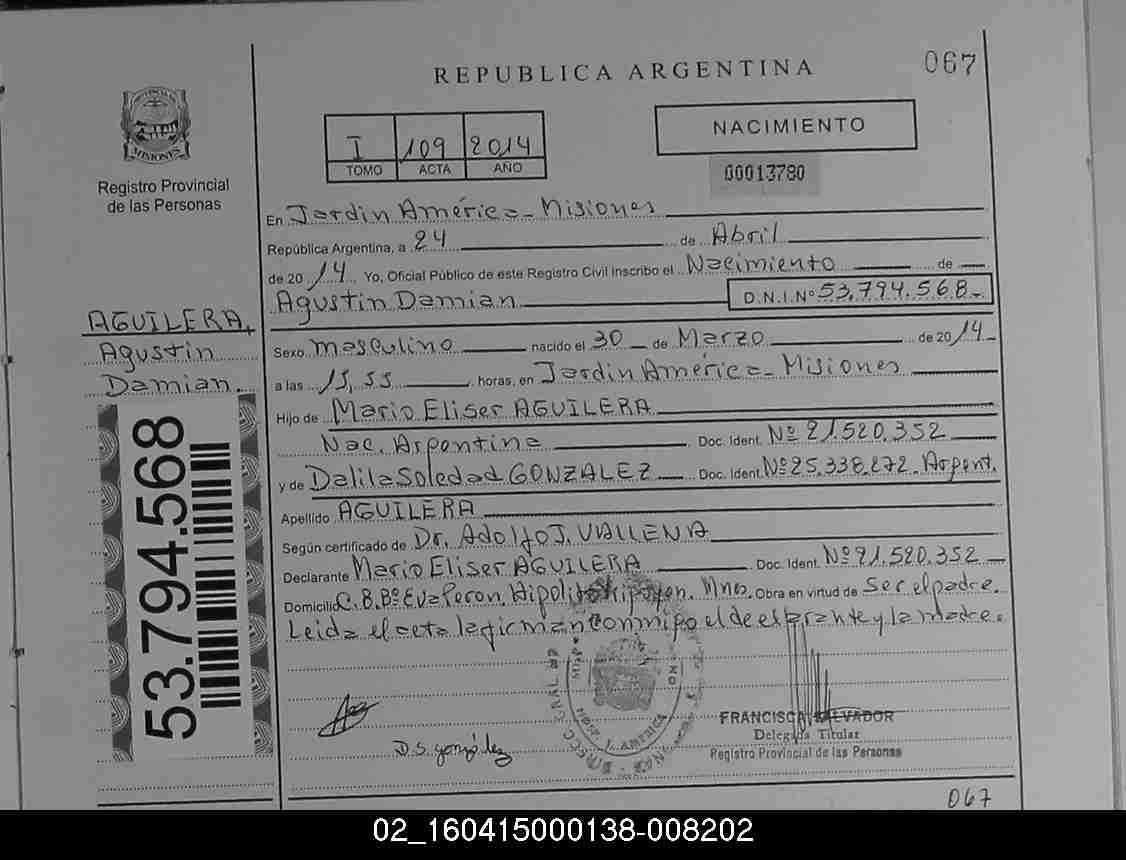 REPUBLICA ARGENTINA
067
I 109 2014
TOMO ACTA AÑO
NACIMIENTO
00013780
PROVINCIA DE MISIONES
Registro Provincial
de las Personas
En Jardín América - Misiones
República Argentina, a 24 de Abril
de 2014 Yo, Oficial Público de este Registro Civil inscribo el Nacimiento de
Agustin Damian D.N.I. Nº 53.794.568-
AGUILERA,
Agustin
Damian.
53.794.568
Sexo masculino nacido el 30 de Marzo de 2014
a las 15,55 horas, en Jardín América - Misiones
Hijo de Mario Eliser AGUILERA
Nac. Argentina Doc. Ident. Nº 21.520.352
y de Dalila Soledad GONZALEZ Doc. Ident. Nº 25.338.272. Argent.
Apellido AGUILERA
Según certificado de Dr. Adolfo J. VALLENA
Declarante Mario Eliser AGUILERA Doc. Ident. Nº 21.520.352
Domicilio C.B.Bº Eva Peron. Hipolito Yrigoyen. Mnes. Obra en virtud de Ser el padre.
Leida el acta la firman conmigo el declarante y la madre.
D.S. González
J. AMERICA
FRANCISCA SALVADOR
Delegada Titular
Registro Provincial de las Personas
067
02_160415000138-008202